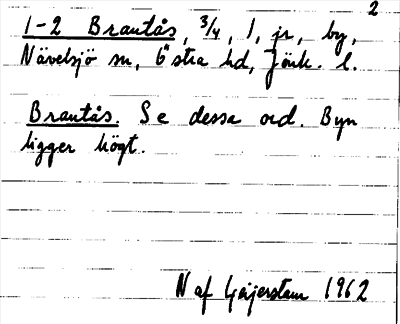 2
1-2 Brantås, 3/4, 1, jr, by,
Nävelsjö sn, Östra hd, Jönk. l.
Brantås. Se dessa ord. Byn
ligger högt.
N af Geijerstam 1962